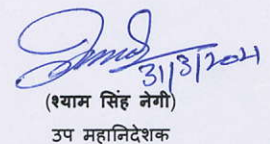 31/3/2021
(श्याम सिंह नेगी)
उप महानिदेशक